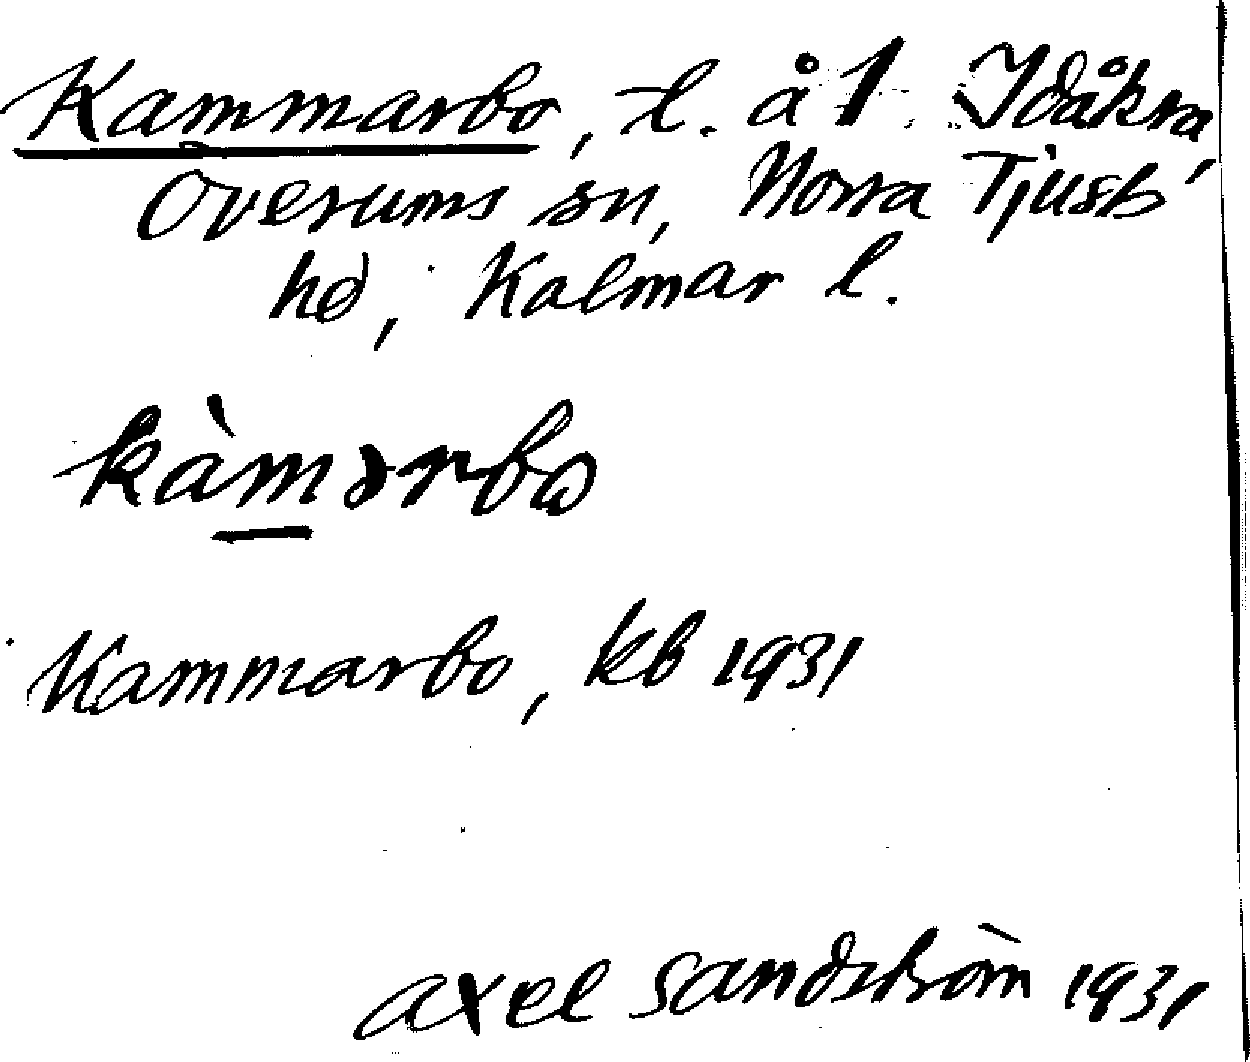 Kammarbo, t. å 1 Idåkra,
Overums sn, Norra Tjusts
hd, Kalmar l.
kàmərbo
Kammarbo, kb 1931
Axel Sandström 1931